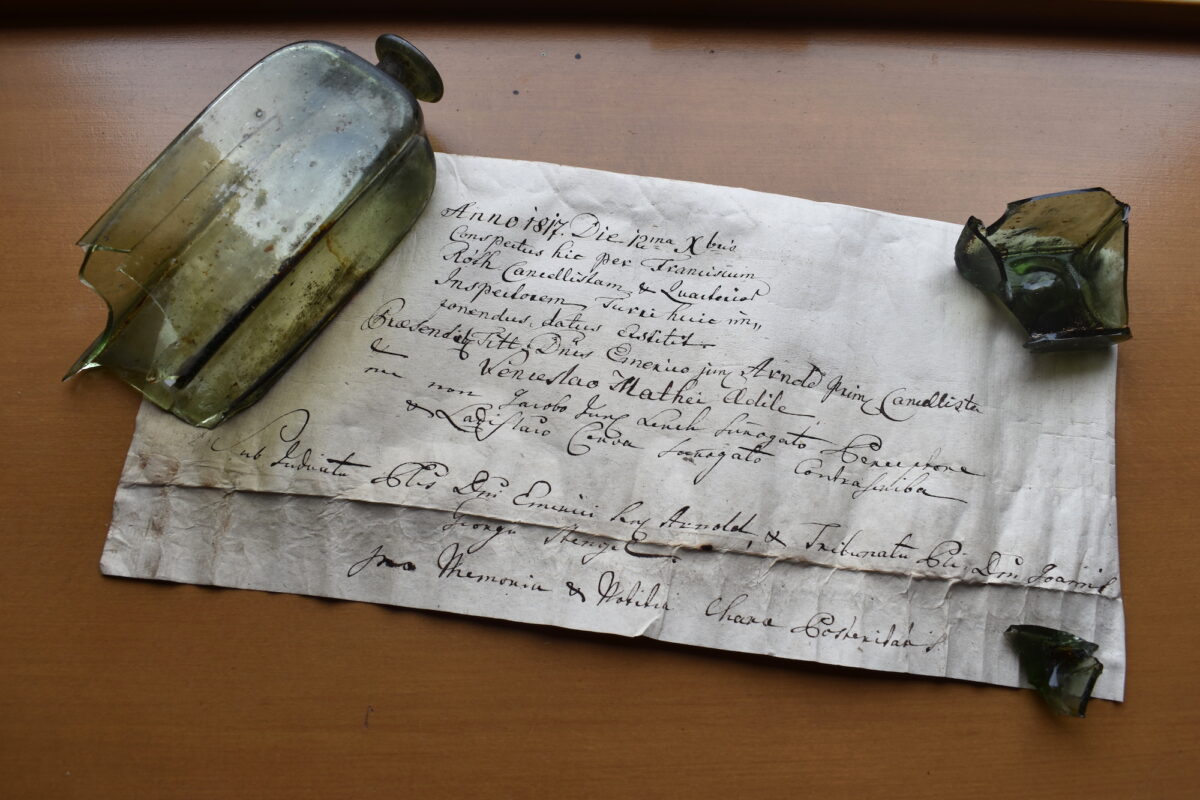 Anno 1817. Die 12ma Xbris
Conspectus hic per Franciscum
Róth Cancellistam & Quartirior
Inspectorem Turri huic im„
ponendus, datus exstitit.
Præsend Titt. Dnis Emerico jun Arnold prim Cancellista
& Venceslao Mathei Ædile
nec non Jacobo Junx Lerch surrogato Perceptore
& Ladislaio Cerva surrogato Contrascriba
Sub Judicatu Plis Dni Emerici sen Arnold, & Tribunatu Pli Dni Joannis
Georgii Stengel
pro Memoria & Notitia Charæ Posteritatis.